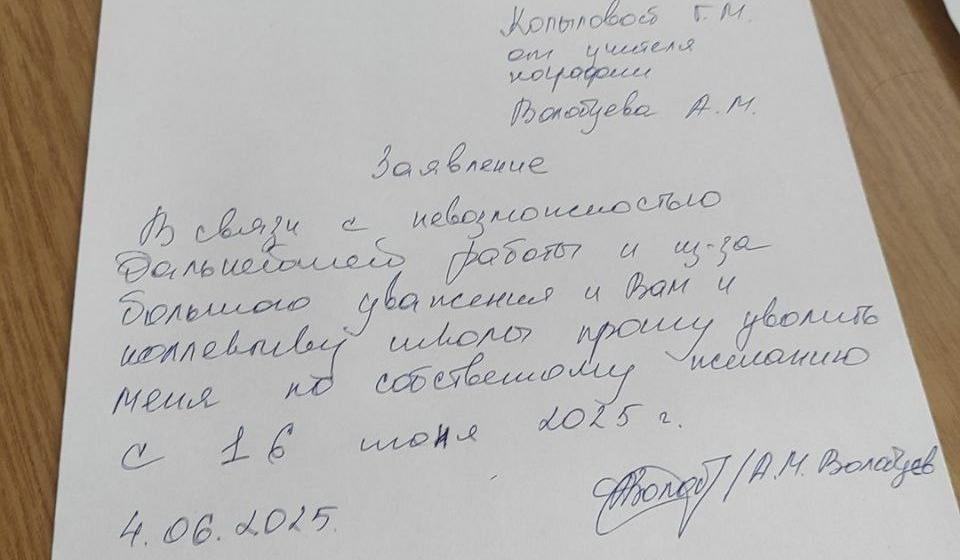 Копыловой Г.М.
от учителя
географии
Волобуева А.М.
Заявление
В связи с невозможностью
дальнейшей работы и из-за
большого уважения к Вам и
коллективу школы прошу уволить
меня по собственному желанию
с 16 июня 2025 г.
/ А.М. Волобуев
4.06.2025.